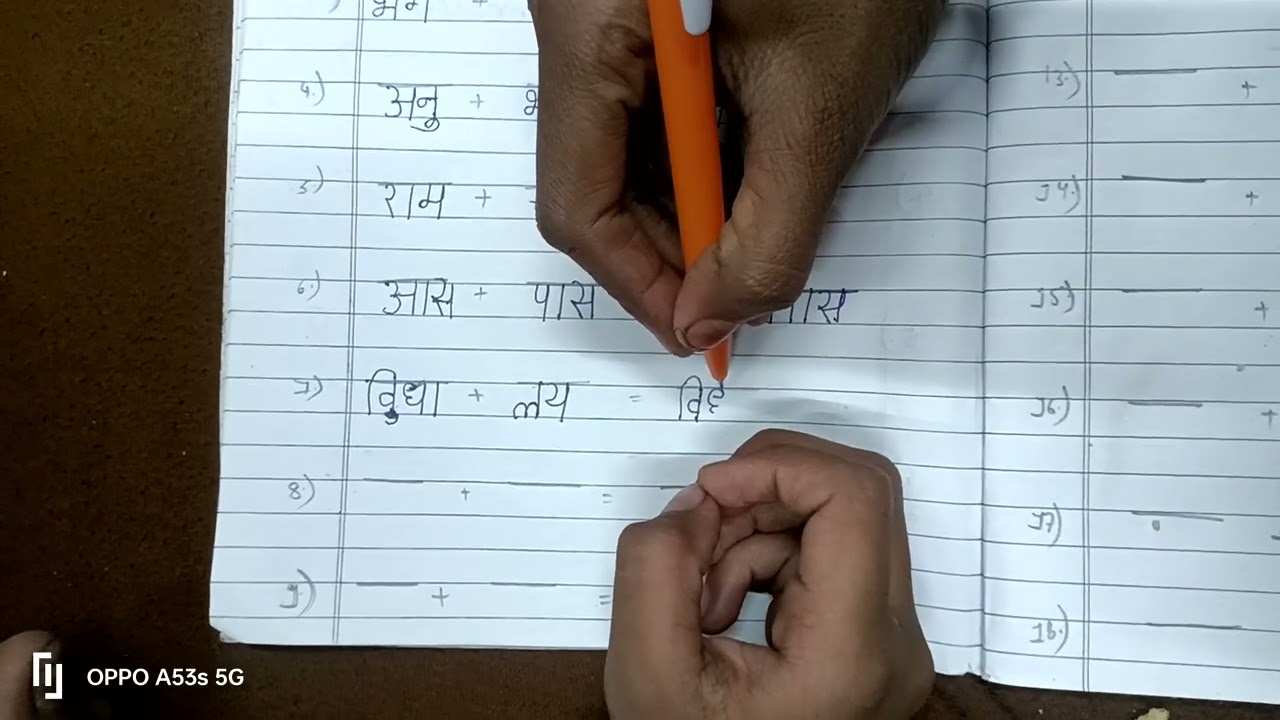 4.) अनु +
5.) राम +
6.) आस + पास
7) विद्या + लय =
8.) + =
9.) + =
13.) +
14.) +
15) +
16.) +
17)
18.)
OPPO A53s 5G